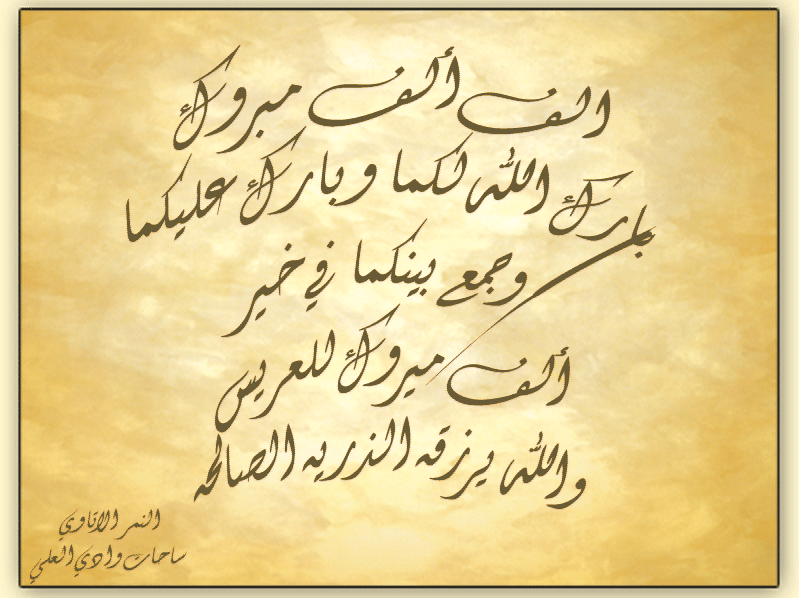 الف ألف مبروك
بارك الله لكما وبارك عليكما
وجمع بينكما في خير
ألف مبروك للعريس
والله يرزقه الذريه الصالحه
النمر الاتاوي
ساحات وادي العلي